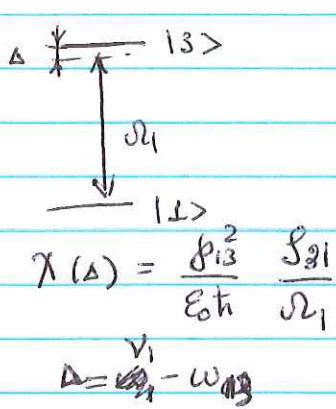 Δ |3>
Ω₁
|1>
χ(Δ) = ℘₁₃² / ε₀ħ ρ₃₁ / Ω₁
Δ = ν₁ - ω₁₃